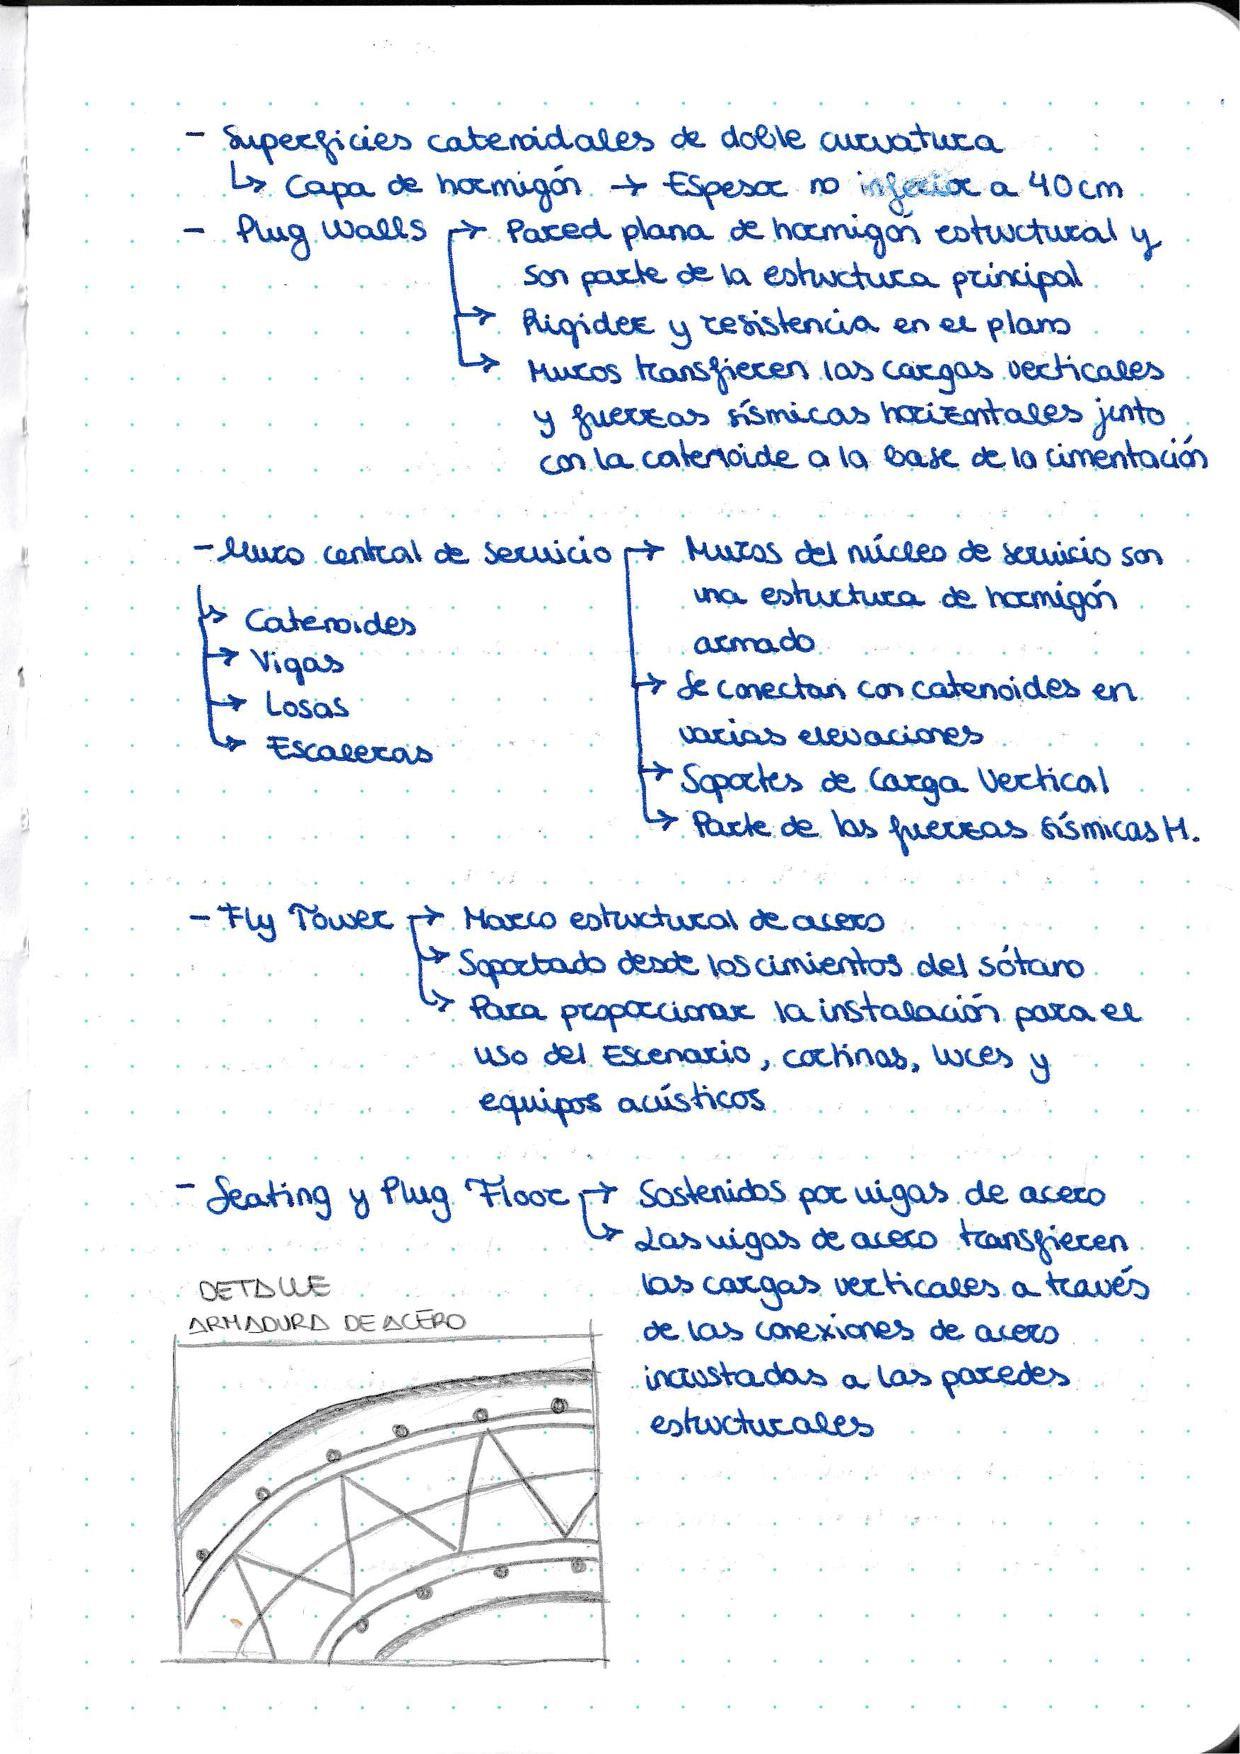 - Superficies catenoidales de doble curvatura
↳ Capa de hormigón → Espesor no inferior a 40cm
- Plug Walls → Pared plana de hormigón estructural y
son parte de la estructura principal
→ Rigidez y resistencia en el plano
→ Muros transfieren las cargas verticales
y fuerzas sísmicas horizontales junto
con la catenoide a la base de la cimentación
- Muro central de servicio → Muros del núcleo de servicio son
una estructura de hormigón
armado
→ Catenoides
→ Vigas
→ Losas
→ Escaleras
→ Se conectan con catenoides en
varias elevaciones
→ Soportes de Carga Vertical
→ Parte de las fuerzas sísmicas H.
- Fly Tower → Marco estructural de acero
→ Soportado desde los cimientos del sótano
→ Para proporcionar la instalación para el
uso del Escenario, cortinas, luces y
equipos acústicos
- Seating y Plug Floor → Sostenidos por vigas de acero
→ Las vigas de acero transfieren
las cargas verticales a través
de las conexiones de acero
incrustadas a las paredes
estructurales
DETALLE
ARMADURA DE ACERO